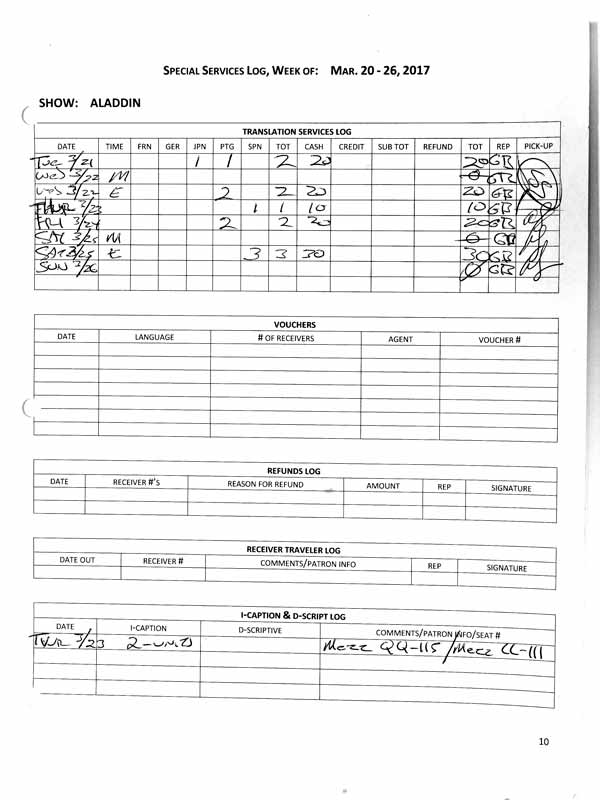 SPECIAL SERVICES LOG, WEEK OF: MAR. 20 - 26, 2017
SHOW: ALADDIN
TRANSLATION SERVICES LOG
DATE TIME FRN GER JPN PTG SPN TOT CASH CREDIT SUB TOT REFUND TOT REP PICK-UP
Tue 3/21 1 1 2 20 20 GB
Wed 3/22 M 0 GB
Wed 3/22 E 2 2 20 20 GB
THUR 3/23 1 1 10 10 GB
FRI 3/24 2 2 20 20 GB
SAT 3/25 M 0 GB
SAT 3/25 E 3 3 30 30 GB
SUN 3/26 0 GB
VOUCHERS
DATE LANGUAGE # OF RECEIVERS AGENT VOUCHER #
REFUNDS LOG
DATE RECEIVER #'S REASON FOR REFUND AMOUNT REP SIGNATURE
RECEIVER TRAVELER LOG
DATE OUT RECEIVER # COMMENTS/PATRON INFO REP SIGNATURE
I-CAPTION & D-SCRIPT LOG
DATE I-CAPTION D-SCRIPTIVE COMMENTS/PATRON INFO/SEAT #
THUR 3/23 Mezz QQ-115 / Mezz CC-111
10